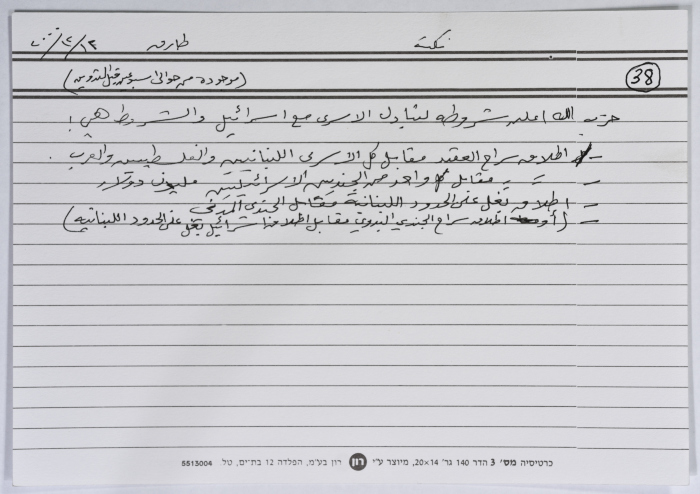 نكتة طارق ٢٠٠٠/١٢/١٣
(موجودة من حوالي اسبوعين قبل التدوين)
38
حزب الله اعلن شروطه لتبادل الاسرى مع اسرائيل والشروط هي!
- اطلاق سراح العقيد مقابل كل الاسرى اللبنانيين والفلسطينيين والعرب.
- مقابل كل واحد من الجنديين الاسرائيليين مليون دولار
- اطلاق بغل على الحدود اللبنانية مقابل الجندي البدوي
- (أو اطلاق سراح الجندي البدوي مقابل اطلاق اسرائيل بغل على الحدود اللبنانية)
כרטיסיה מס' 3 הדר 140 גר' 14×20, מיוצר ע"י רון רון בע"מ, הפלדה 12 בת-ים, טל. 5513004